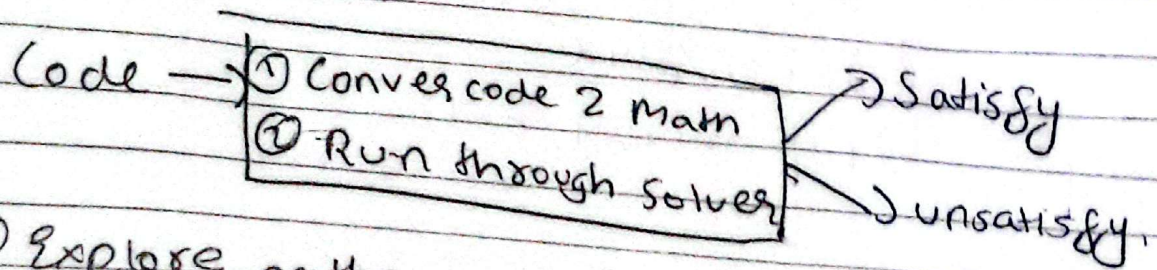 Code → ① Conver code 2 Math
② Run through Solver
Satisfy
unsatisfy.
Explore